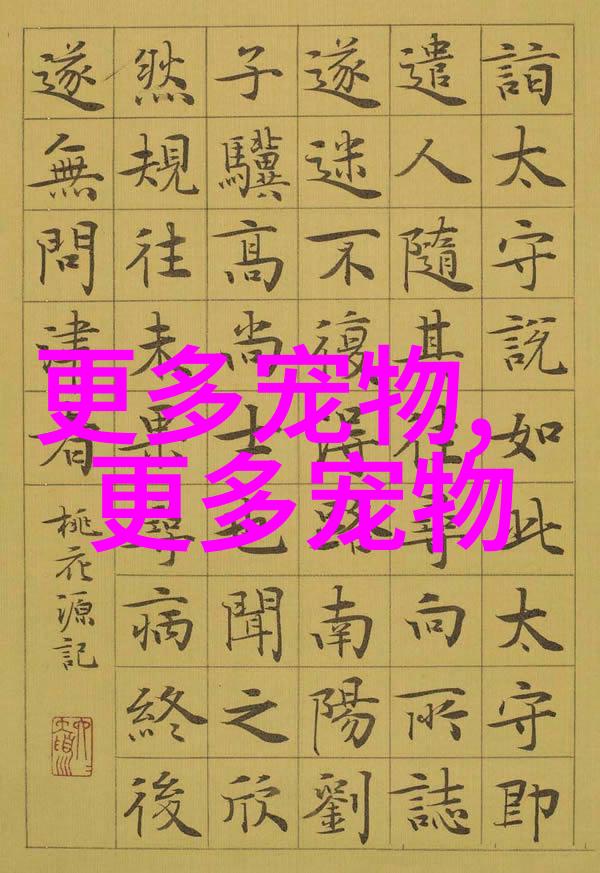 詣太守說如此太守即
遣人隨其往尋向所誌
遂迷不復得路南陽劉
子驥高尚士也聞之欣
然規往未果尋病終後
遂無問津者
桃花源記
更多宠物,
更多宠物